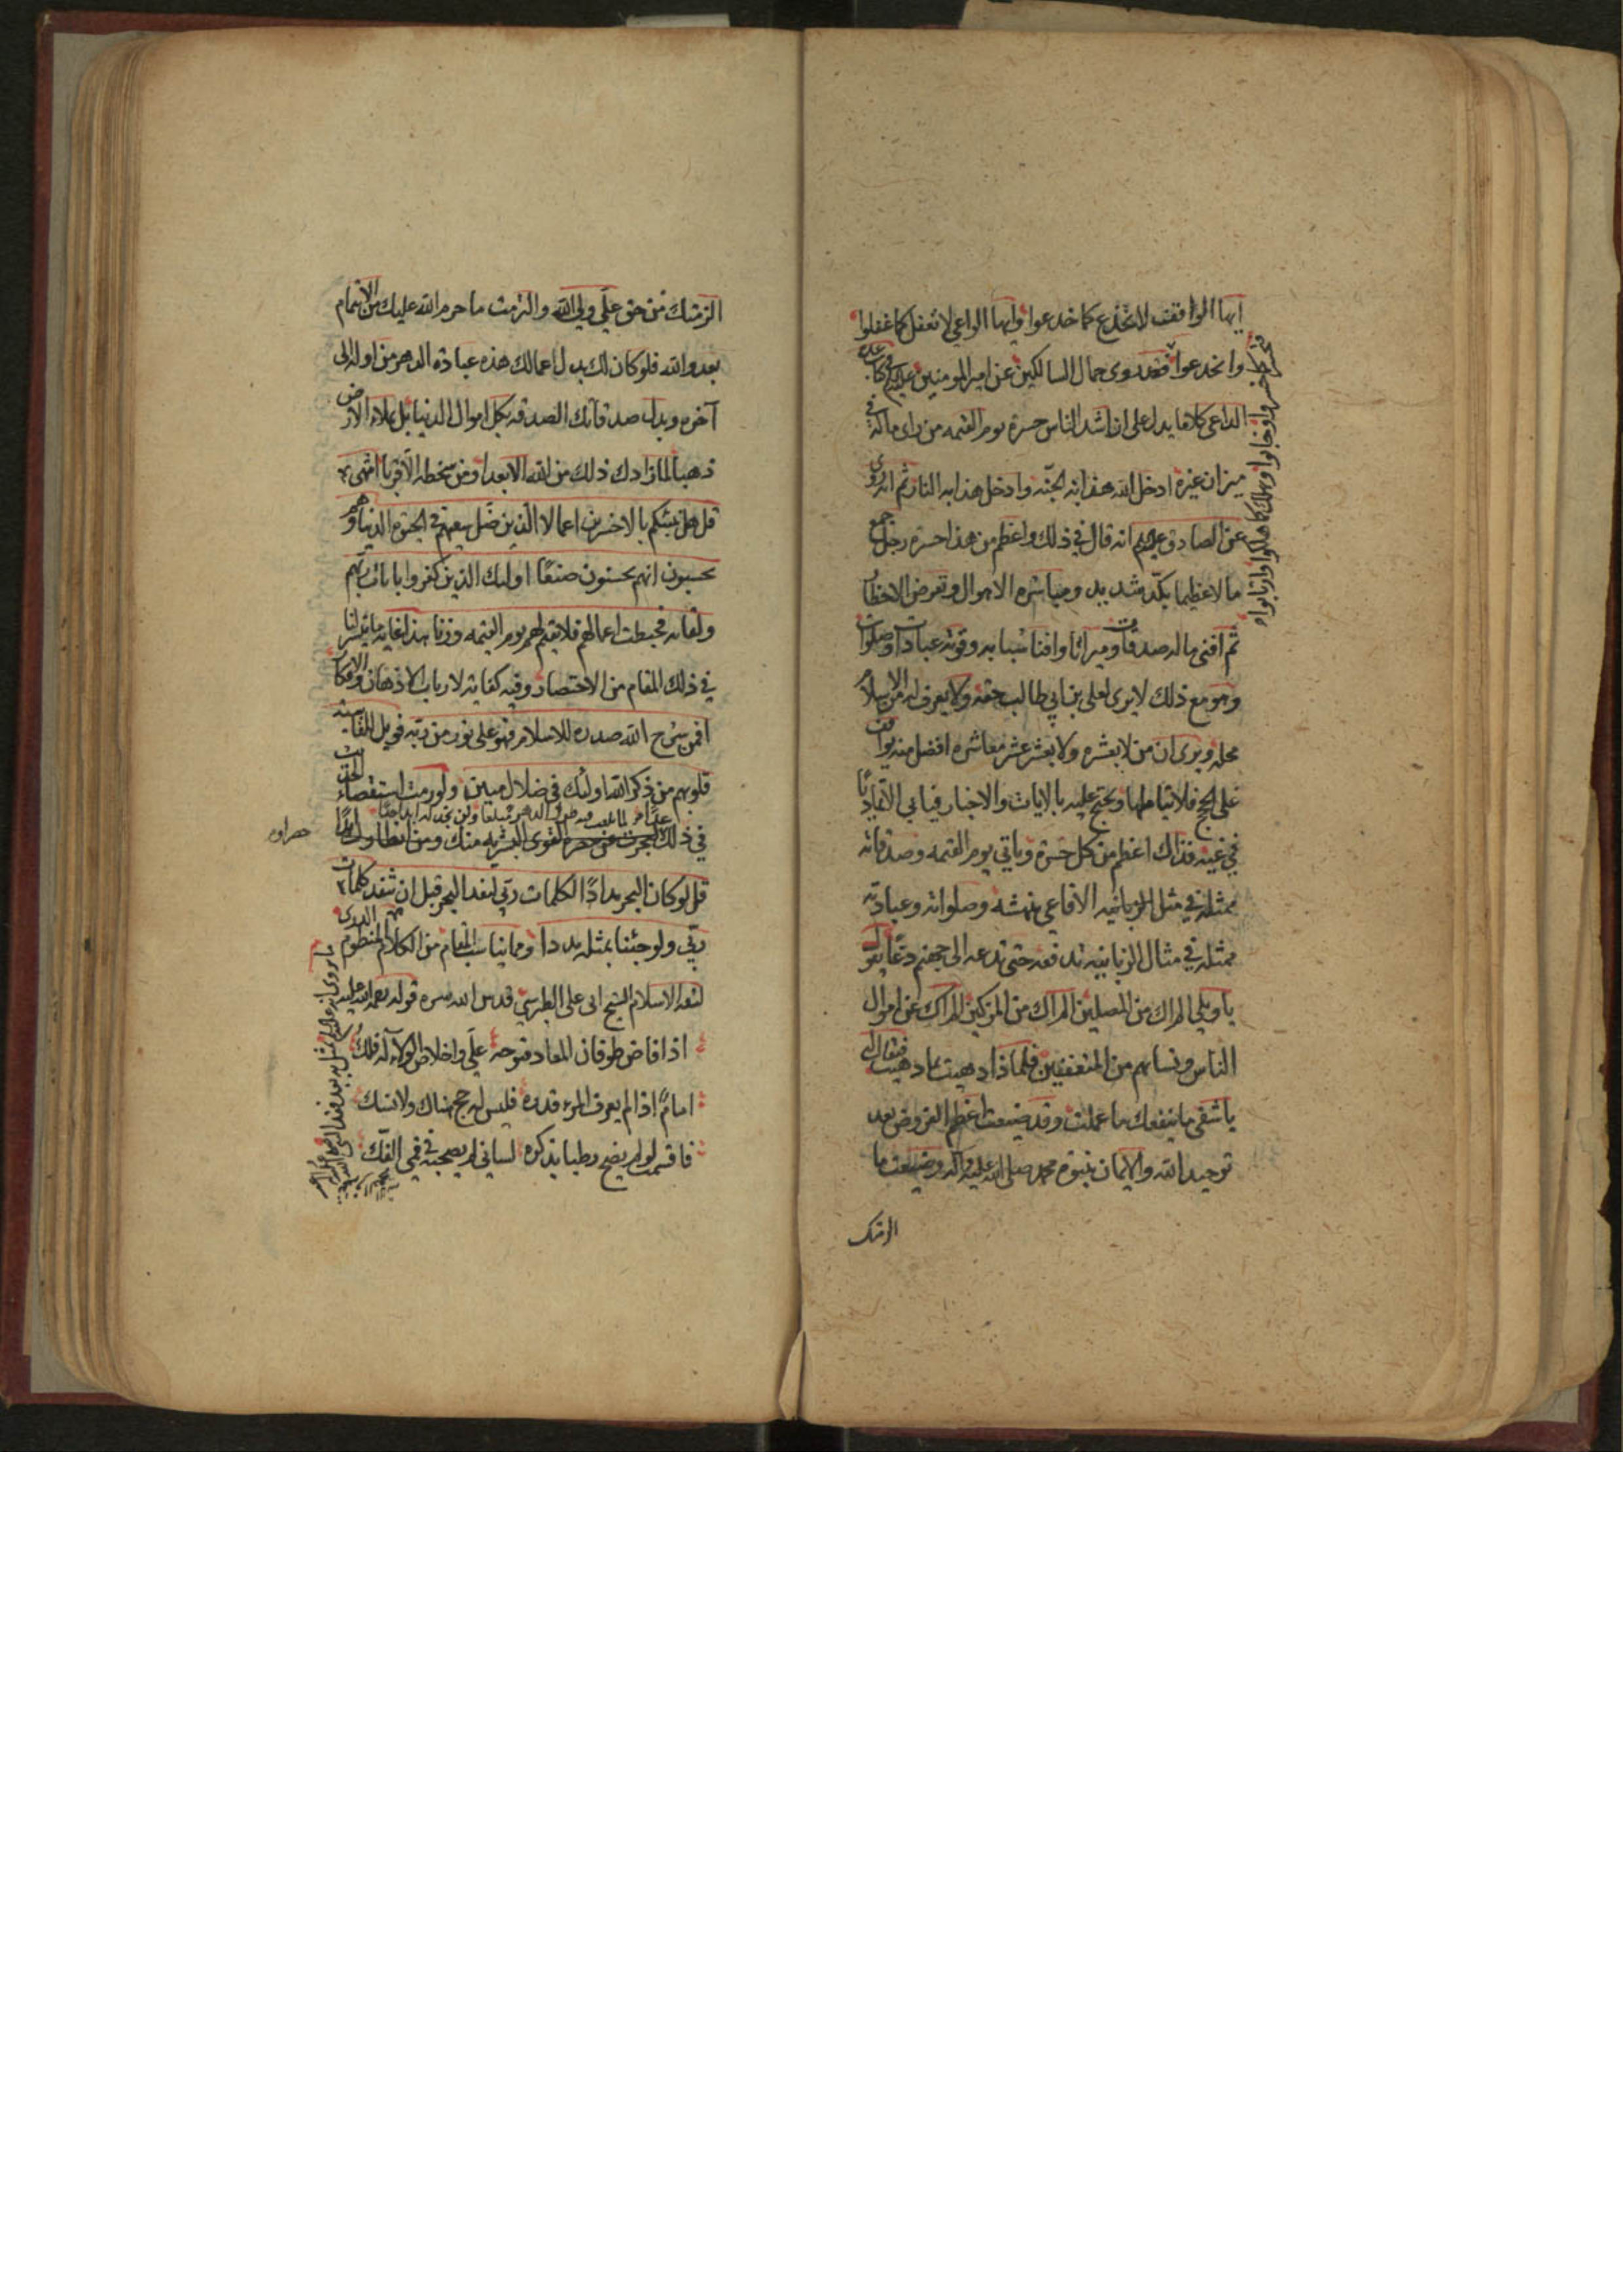 ايها الواقف لا تخدع كما خدعوا وايها الواعي لا تغفل كما غفلوا
وانخدعوا فقد روى جمال السالكين عن امير المومنين عليه في كتاب عدة
الداعي كلاما يدل على ان اشد الناس حسرة يوم القيمه من راى ماله في
ميزان غيره ادخل الله هذا به الجنة وادخل هذا به النار ثم انه روى
عن الصادق انه قال في ذلك واعظم من هذا حسرة رجل جمع
مالا عظيما بكد شديد ومباشره الاهوال وتعرض الاخطار
ثم افنى ماله صدقات وميراثا وافنا شبابه وقوته عبادات وصلوات
وهو مع ذلك لا يرى لعلي بن ابي طالب حقه ولا يعرف له من الاسلام
محله ويرى ان من لا بعشره ولا بعشر عشر معشاره افضل منه يواقف
على الحجج فلا يتاملها ويحتج عليه بالايات والاخبار فيابى الا تماديا
في غيه فذاك اعظم من كل حسرة وياتي يوم القيمه وصدقاته
ممثلة في مثل الافاعي تنهشه وصلواته وعبادته
ممثلة في مثال الزبانيه تدفعه حتى تدعه الى جهنم دعا يقول
يا ويلي الم اك من المصلين الم اك من المزكين الم اك عن اموال
الناس ونسائهم من المتعففين فلماذا دهيت بما دهيت فيقال له
يا شقي ما ينفعك ما عملت وقد ضيعت اعظم الفروض بعد
توحيد الله والايمان بنبوة محمد صلى الله عليه واله وضيعت ما
الزمتك
الزمتك من حق علي ولي الله والتزمت ما حرم الله عليك من الايتمام
بعدو الله فلو كان لك بدل اعمالك هذه عبادة الدهر من اوله الى
آخره وبدل صدقاتك الصدقه بكل اموال الدنيا بل بملاء الارض
ذهبا لما زادك ذلك من الله الا بعدا ومن سخطه الا قربا انتهى
قل هل ننبئكم بالاخسرين اعمالا الذين ضل سعيهم في الحيوة الدنيا وهم
يحسبون انهم يحسنون صنعا اولئك الذين كفروا بايات ربهم
ولقائه فحبطت اعمالهم فلا نقيم لهم يوم القيمه وزنا هذا غاية ما تيسر لنا
في ذلك المقام من الاختصار وفيه كفاية لارباب الاذهان والافكار
افمن شرح الله صدره للاسلام فهو على نور من ربه فويل للقاسيه
قلوبهم من ذكر الله اولئك في ضلال مبين ولو رمت استقصاء الحق
في ذلك لعجزت عن حصره القوى البشريه منك ومن
قل لو كان البحر مدادا لكلمات ربي لنفد البحر قبل ان تنفد كلمات
ربي ولو جئنا بمثله مددا ومما يناسب المقام من الكلام المنظوم
لثقه الاسلام الشيخ ابي علي الطبرسي قدس الله سره قوله
اذا فاض طوفان المعاد فنوحه علي واخلاص الولاء له فلك
امام اذا لم يعرف المرء قدره فليس له حج هناك ولا نسك
فاقسمت لو لم يضح رطبا بذكره لساني لم يصحبه في فمي الفك